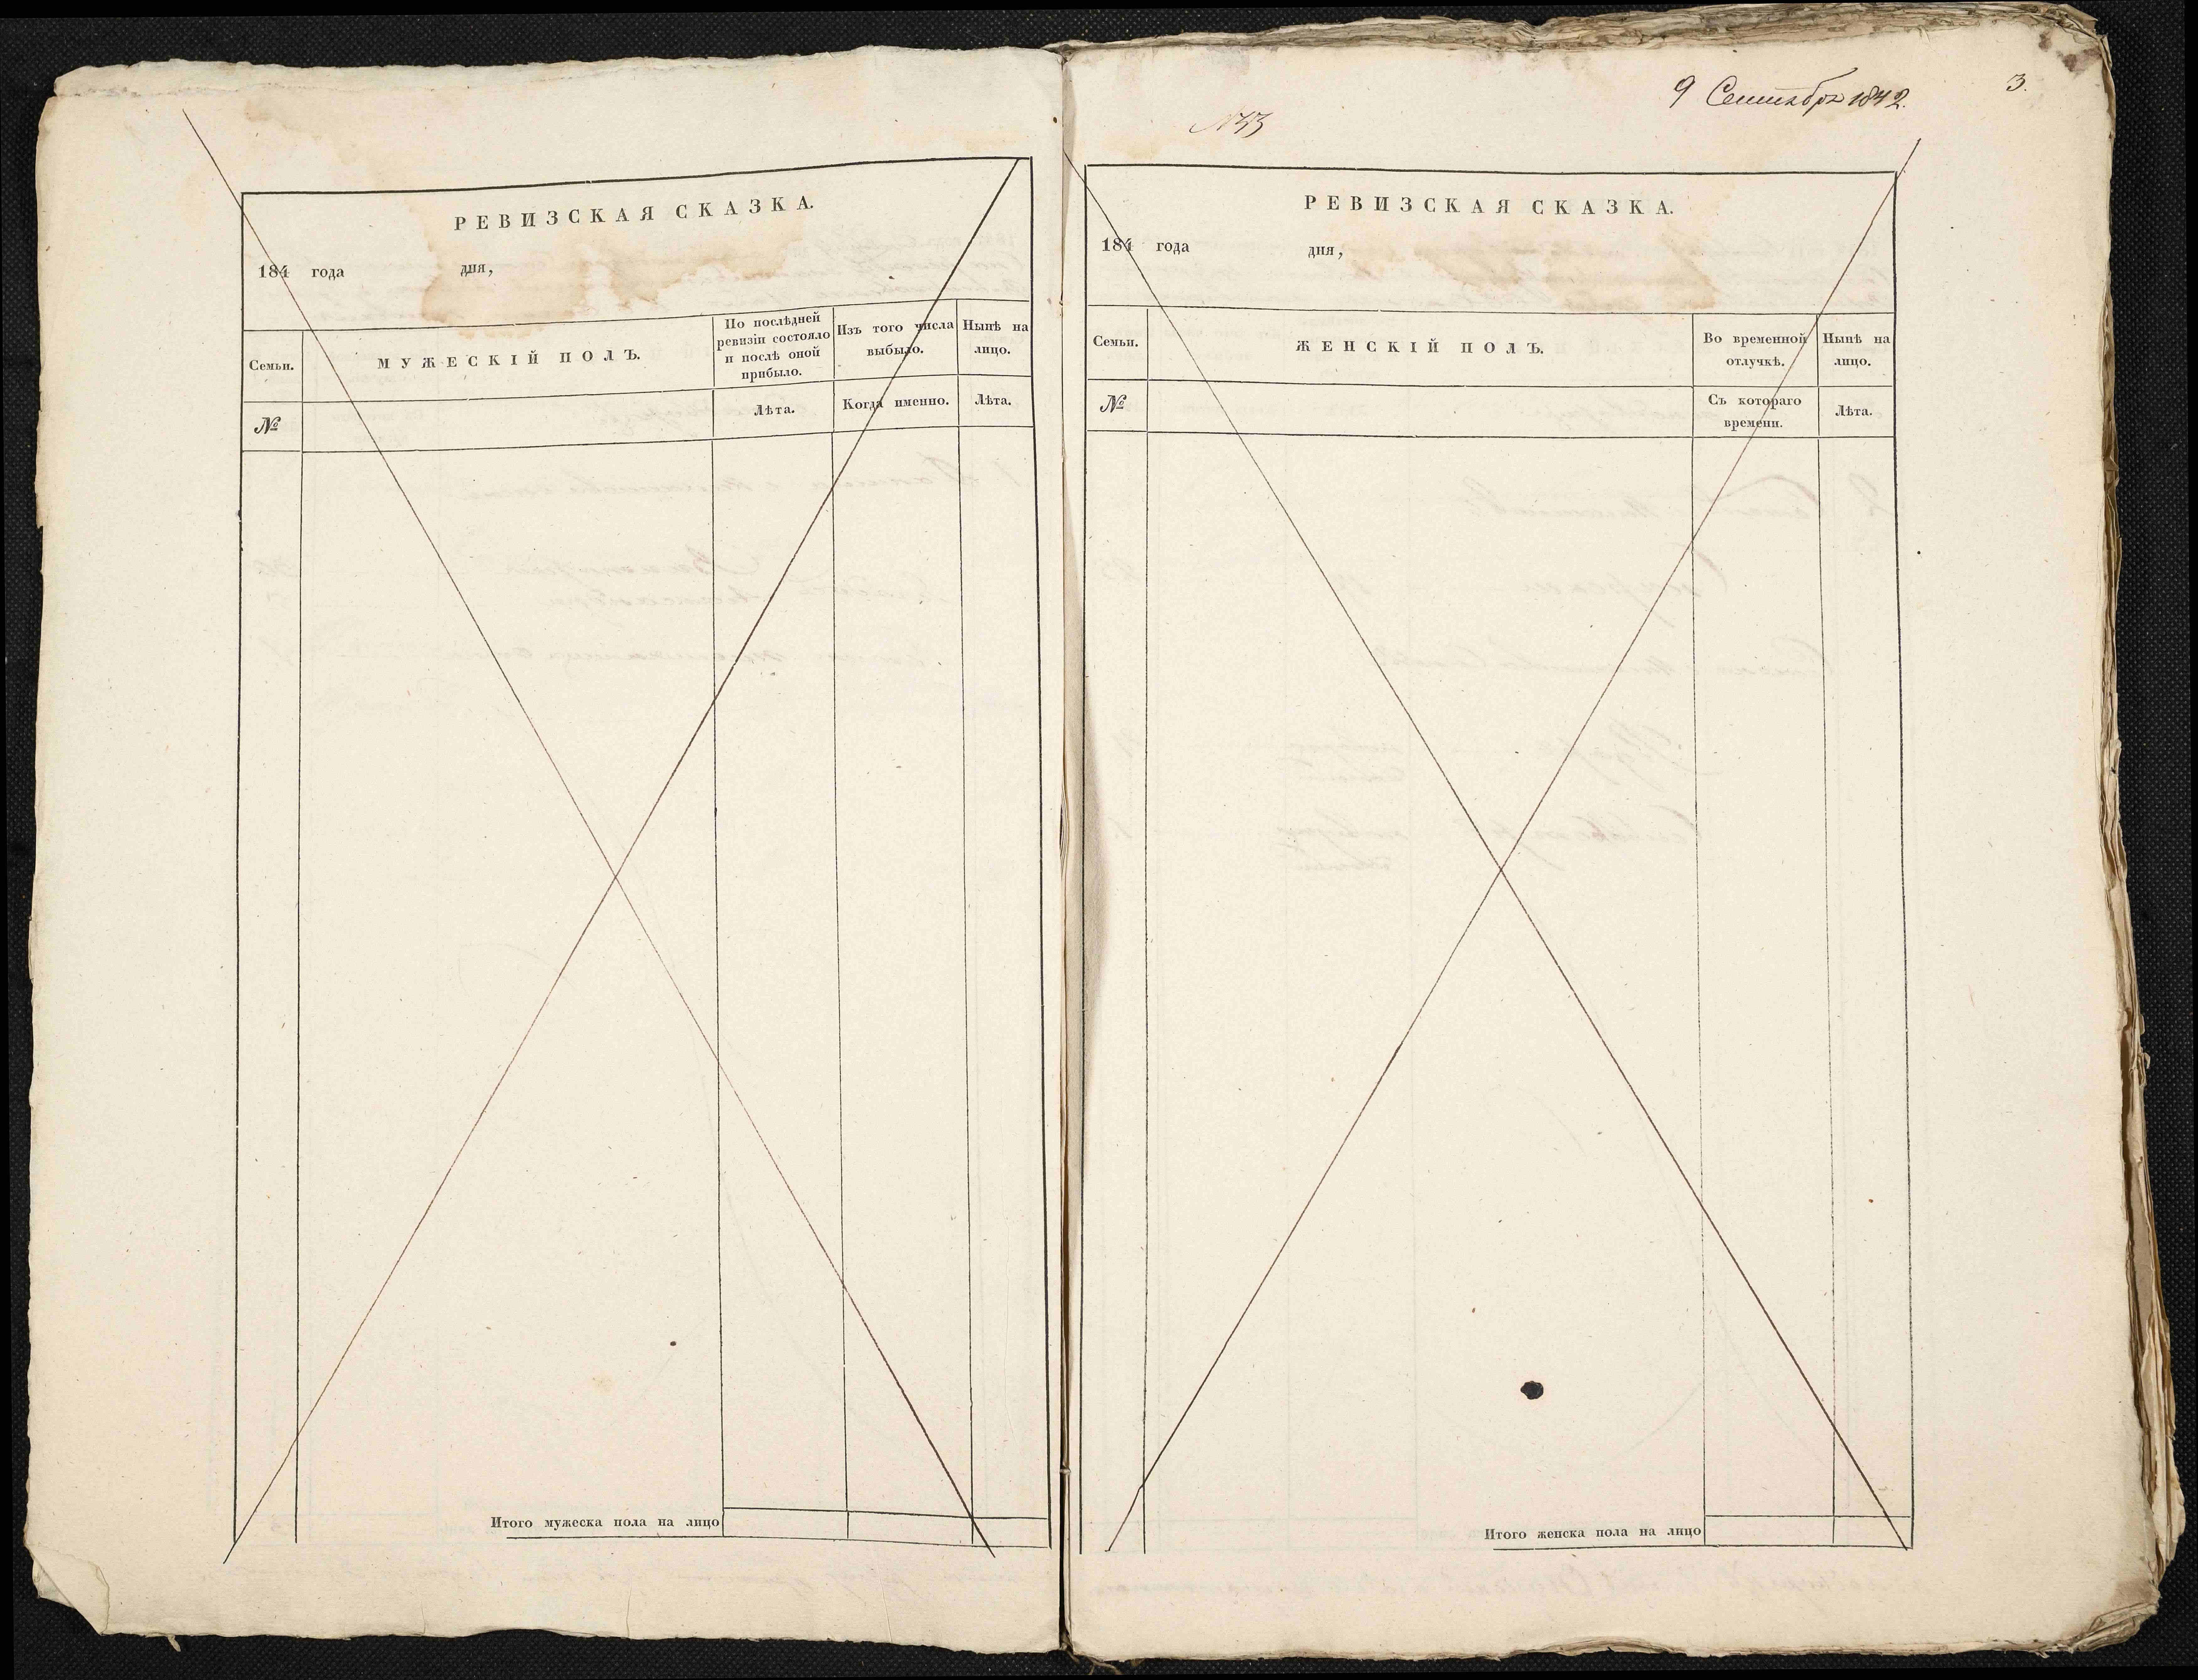 РЕВИЗСКАЯ СКАЗКА.
184 года дня,
Семьи.
МУЖЕСКІЙ ПОЛЪ.
По послѣдней
ревизіи состояло
и послѣ оной
прибыло.
Изъ того числа
выбыло.
Нынѣ на
лицо.
№
Лѣта.
Когда именно.
Лѣта.
Итого мужеска пола на лицо
9 Сентября 1842.
3.
РЕВИЗСКАЯ СКАЗКА.
184 года дня,
Семьи.
ЖЕНСКІЙ ПОЛЪ.
Во временной
отлучкѣ.
Нынѣ на
лицо.
№
Съ котораго
времени.
Лѣта.
Итого женска пола на лицо